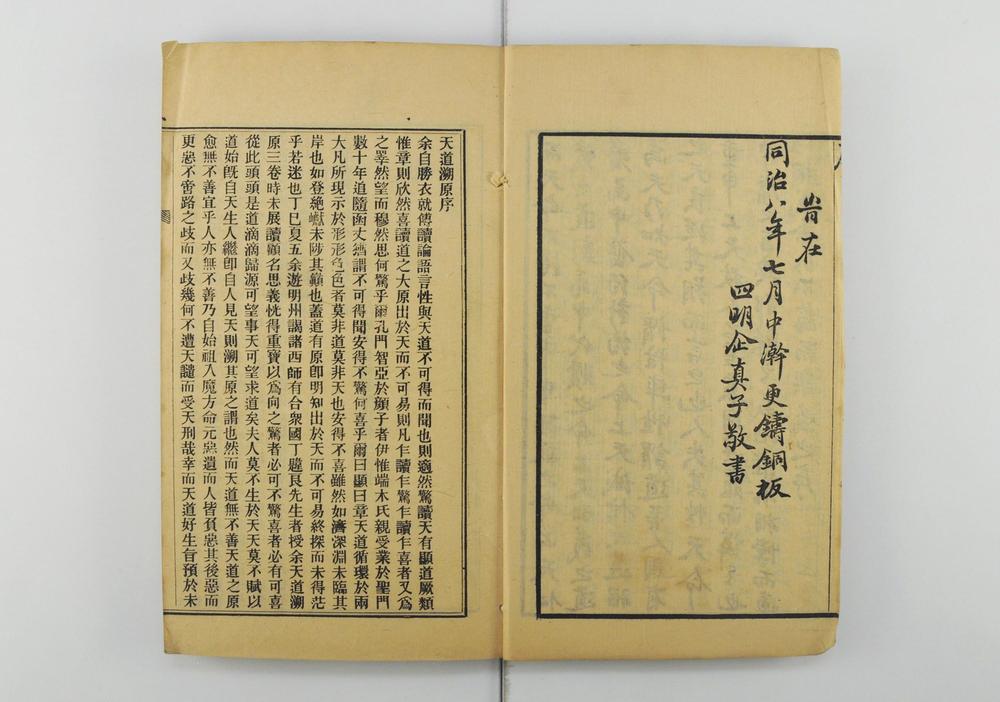 當在
同治八年七月中澣更鑄銅板
四明企真子敬書
天道溯原序
余自勝衣就傅讀論語言性與天道不可得而聞也則適然驚讀天有顯道厥類
惟章則欣然喜讀道之大原出於天而不可易則凡乍讀乍驚乍讀乍喜者又爲
之睪然望而穆然思何驚乎爾孔門智亞於顏子者伊惟端木氏親受業於聖門
數十年追隨函丈猶謂不可得聞安得不驚何喜乎爾曰顯曰章天道循環於兩
大凡所現示於形形色色者莫非道莫非天也安得不喜雖然如濟深淵未臨其
岸也如登絶巘未陟其巔也蓋道有原卽明知出於天而不可易終探而未得茫
乎若迷也丁巳夏五余遊明州謁諸西師有合衆國丁韙良先生者授余天道溯
原三卷時未展讀顧名思義恍得重寶以爲向之驚者必可不驚喜者必有可喜
從此頭頭是道滴滴歸源可望事天可望求道矣夫人莫不生於天天莫不賦以
道始旣自天生人繼卽自人見天則溯其原之謂也然而天道無不善天道之原
愈無不善宜乎人亦無不善乃自始祖入魔方命元惡遺而人皆負惡其後惡而
更惡不啻路之歧而又歧幾何不遭天譴而受天刑哉幸而天道好生旨預於未